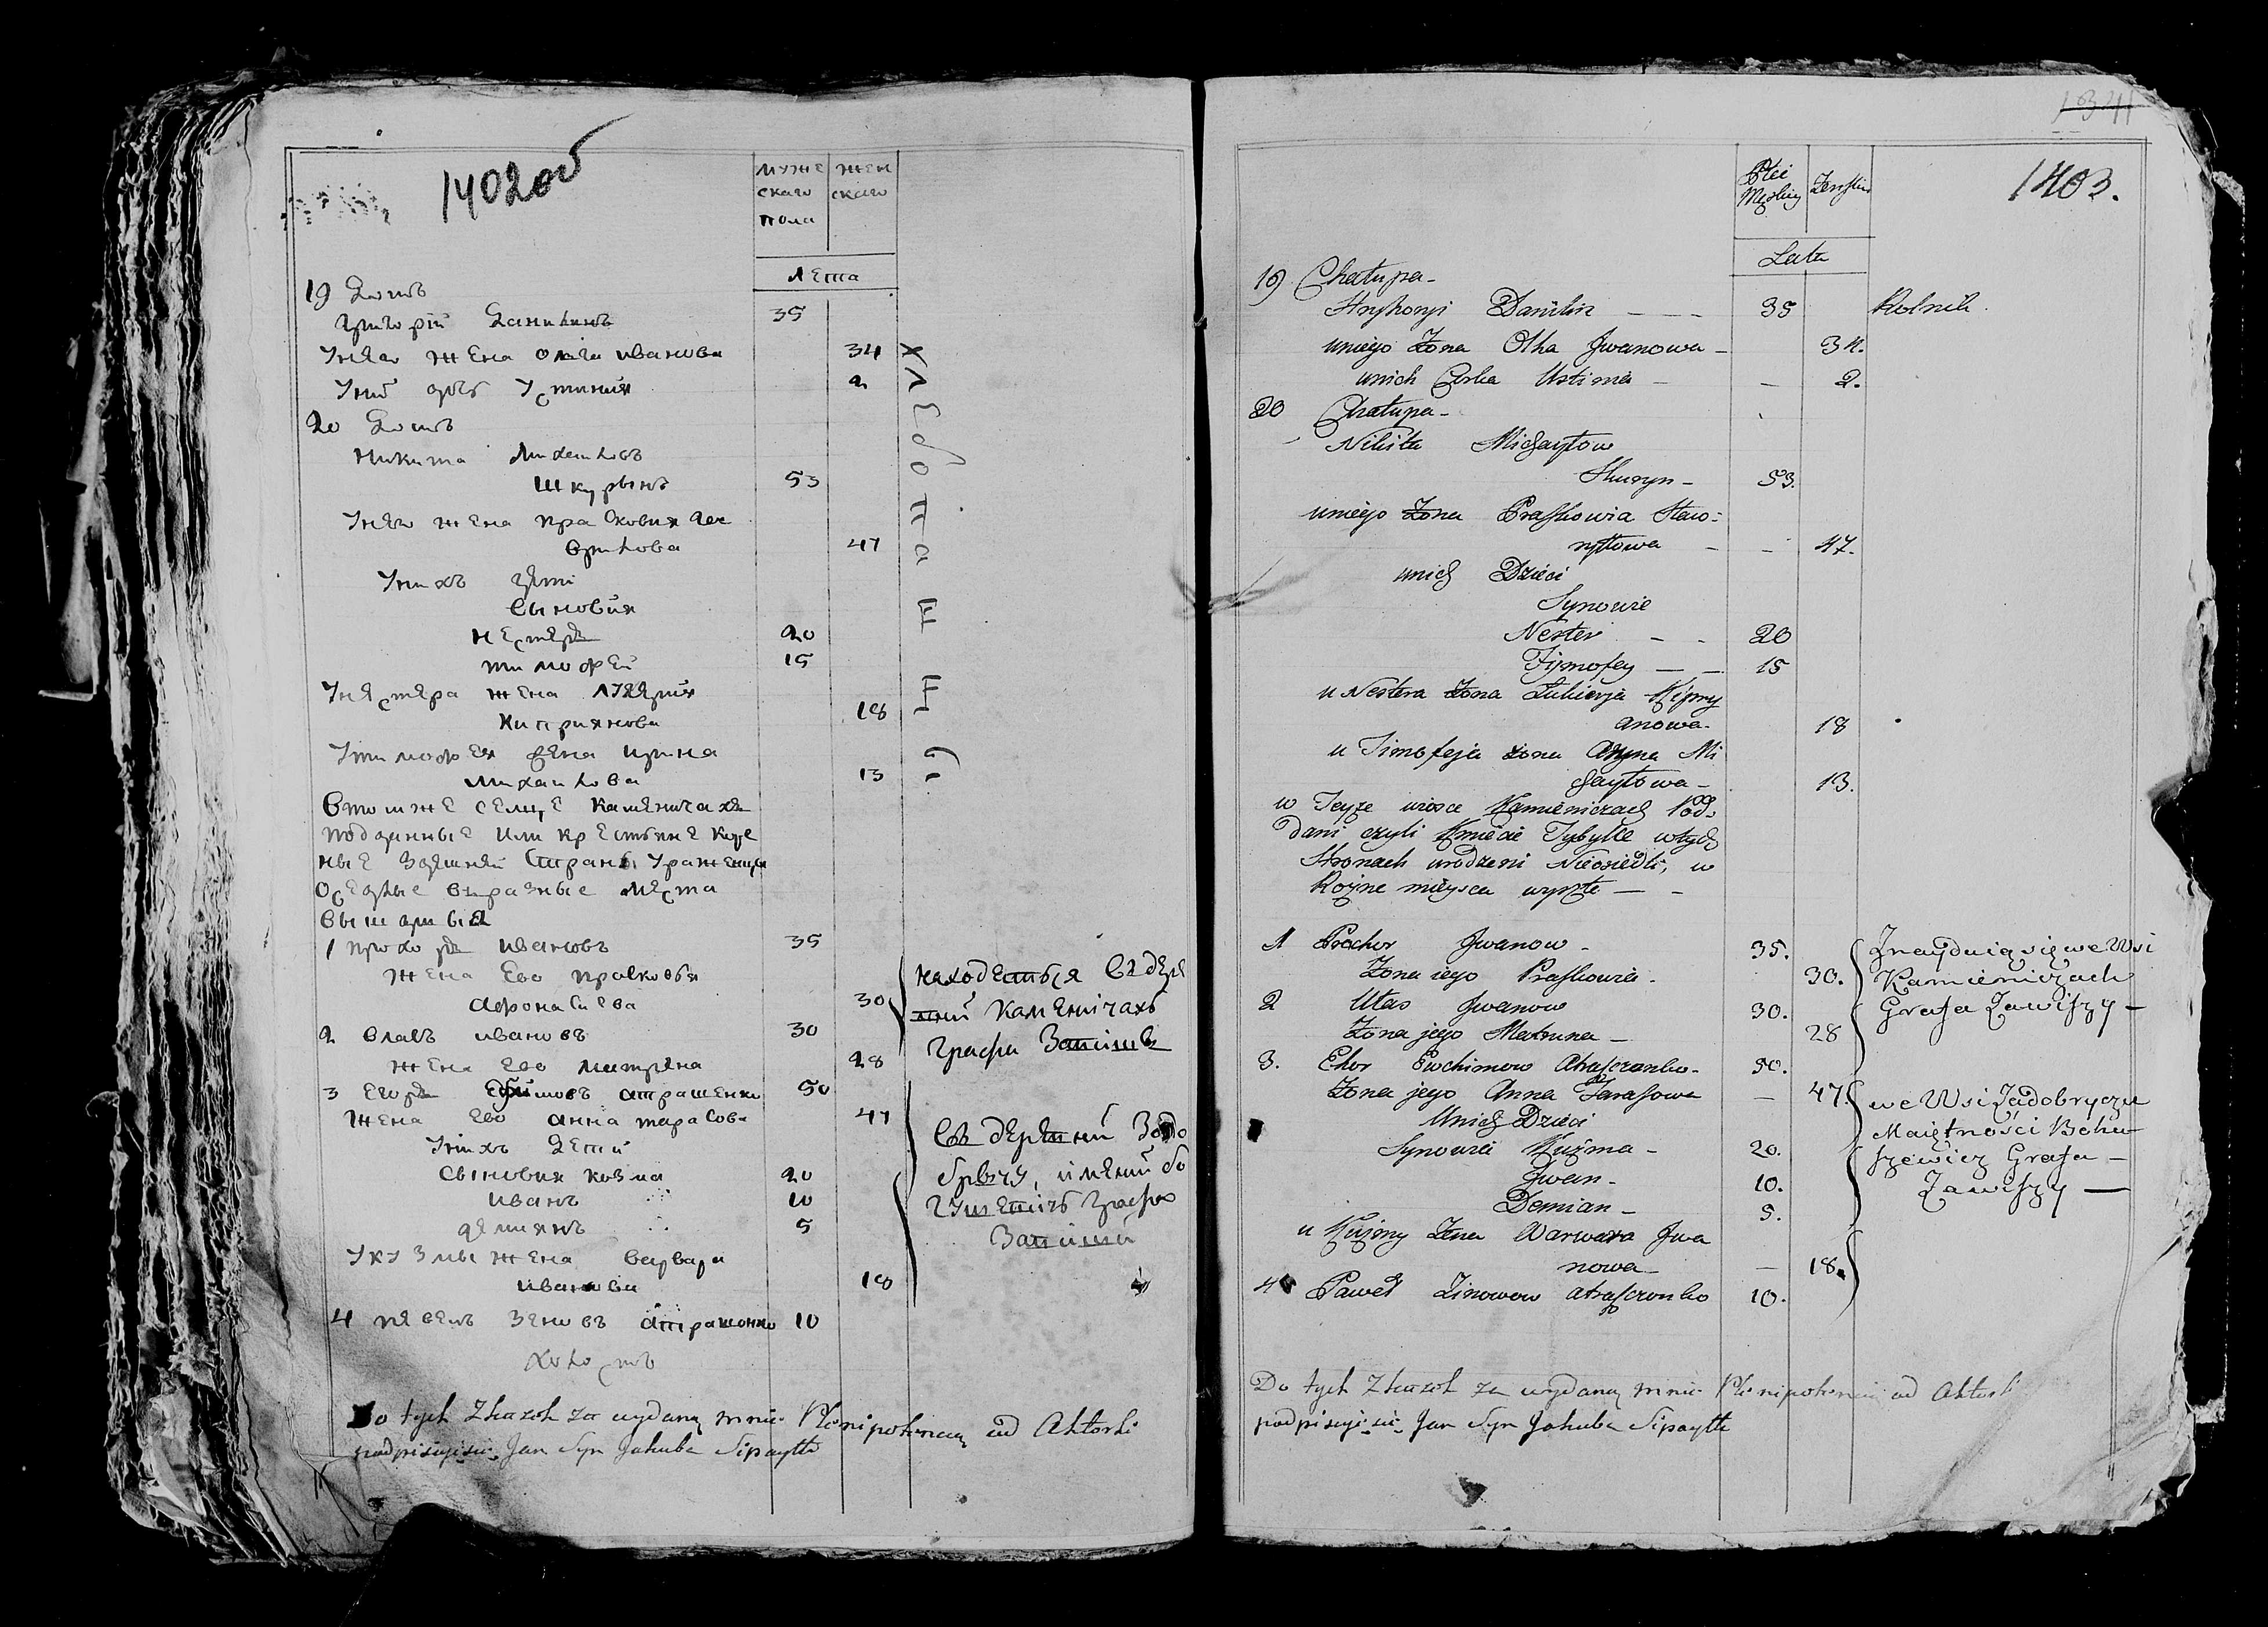 1402об
муже
скаго
пола
жен
скаго
лета
19 Домъ
Григорій Данилинъ 35
Унего жена Олгія Иванова 34
Уній дчь Устинія 2
20 Домъ
Никита Михаиловъ
Шкурынъ 53
Унего жена Прасковия
47
Унихъ дети
Сыновия
Нестеръ 20
Тимофей 15
Унестера жена
Киприянова 18
Утимофея жена Ирина
Михаилова 13
Втомже селце Каменичахъ
подданные или крестьяне
ные здешней Страны
разные места
1 Прохоръ Ивановъ 35
Жена Ево Прасковья
Афонасиева 30
2 Влавъ Ивановъ 30
Жена Ево Матрена 28
3 Егоръ Ефимовъ Атрашенко 50
Жена Ево Анна Тарасова 47
Унихъ Детий
Сыновия Козма 20
Иванъ 10
Демиянъ 5
Укузмы жена Варвара
Иванова 18
4 Павелъ Зеновъ Атрашонко 10
Холостъ
Хлебопа
находяться въ дере
Каменичахъ
Графа
Въ деревни Задо
бричу, имений бо
Графа
Do tych Skazok za wydaną mnie Plenipotencią od Aktorki
podpisuję się Jan Syn Jakuba Sipayłło
1341
1403.
Płci
Męzkiey
Zenskiey
Lata
19 Chałupa-
Hryhoryi Danilin - - - 35 Rolnik.
uniego Zona Olha Jwanowa - 34.
unich Corka Ustinia - - 2.
20 Chałupa-
Nikita Michayłow
Skuryn - 53.
uniego Zona Praskowia Haw:
ryłowa - - 47.
unich Dzieci
Synowie
Nester - - 20
Tijmofey - - 15
u Nestera Zona Łukierja Kipry
anowa- 18
u Timofeja zona Aryna Mi
chayłowa - 13.
w Teyże wiosce Kamieniczach Pod=
dani czyli Kmiecie Tybylce wtych
Stronach urodzeni Nieosiedli, w
Rożne mieysca wyszłe - -
1 Prochor Jwanow - 35.
Zona iego Praskowia - 30.
2 Ułas Jwanow 30.
Zona jego Matruna - 28
3. Ehor Ewchimow Atraszonko- 50.
Zona jego Anna Tarasowa - 47.
Unich Dzieci
Synowie Kuźma - 20.
Jwan - 10.
Demian - 5.
u Kuźmy Zona Warwara Jwa
nowa - - 18.
4 Paweł Zinowow Atraszonko 10.
Znayduią się we Wsi
Kamieniczach
Grafa Zawiszy -
we Wsi Zadobryczu
Maiętności Bohu
szewicz Grafa -
Zawiszy -
Do tych Skazok za wydaną mnie Plenipotencią od Aktorki
podpisuję się Jan Syn Jakuba Sipayłło